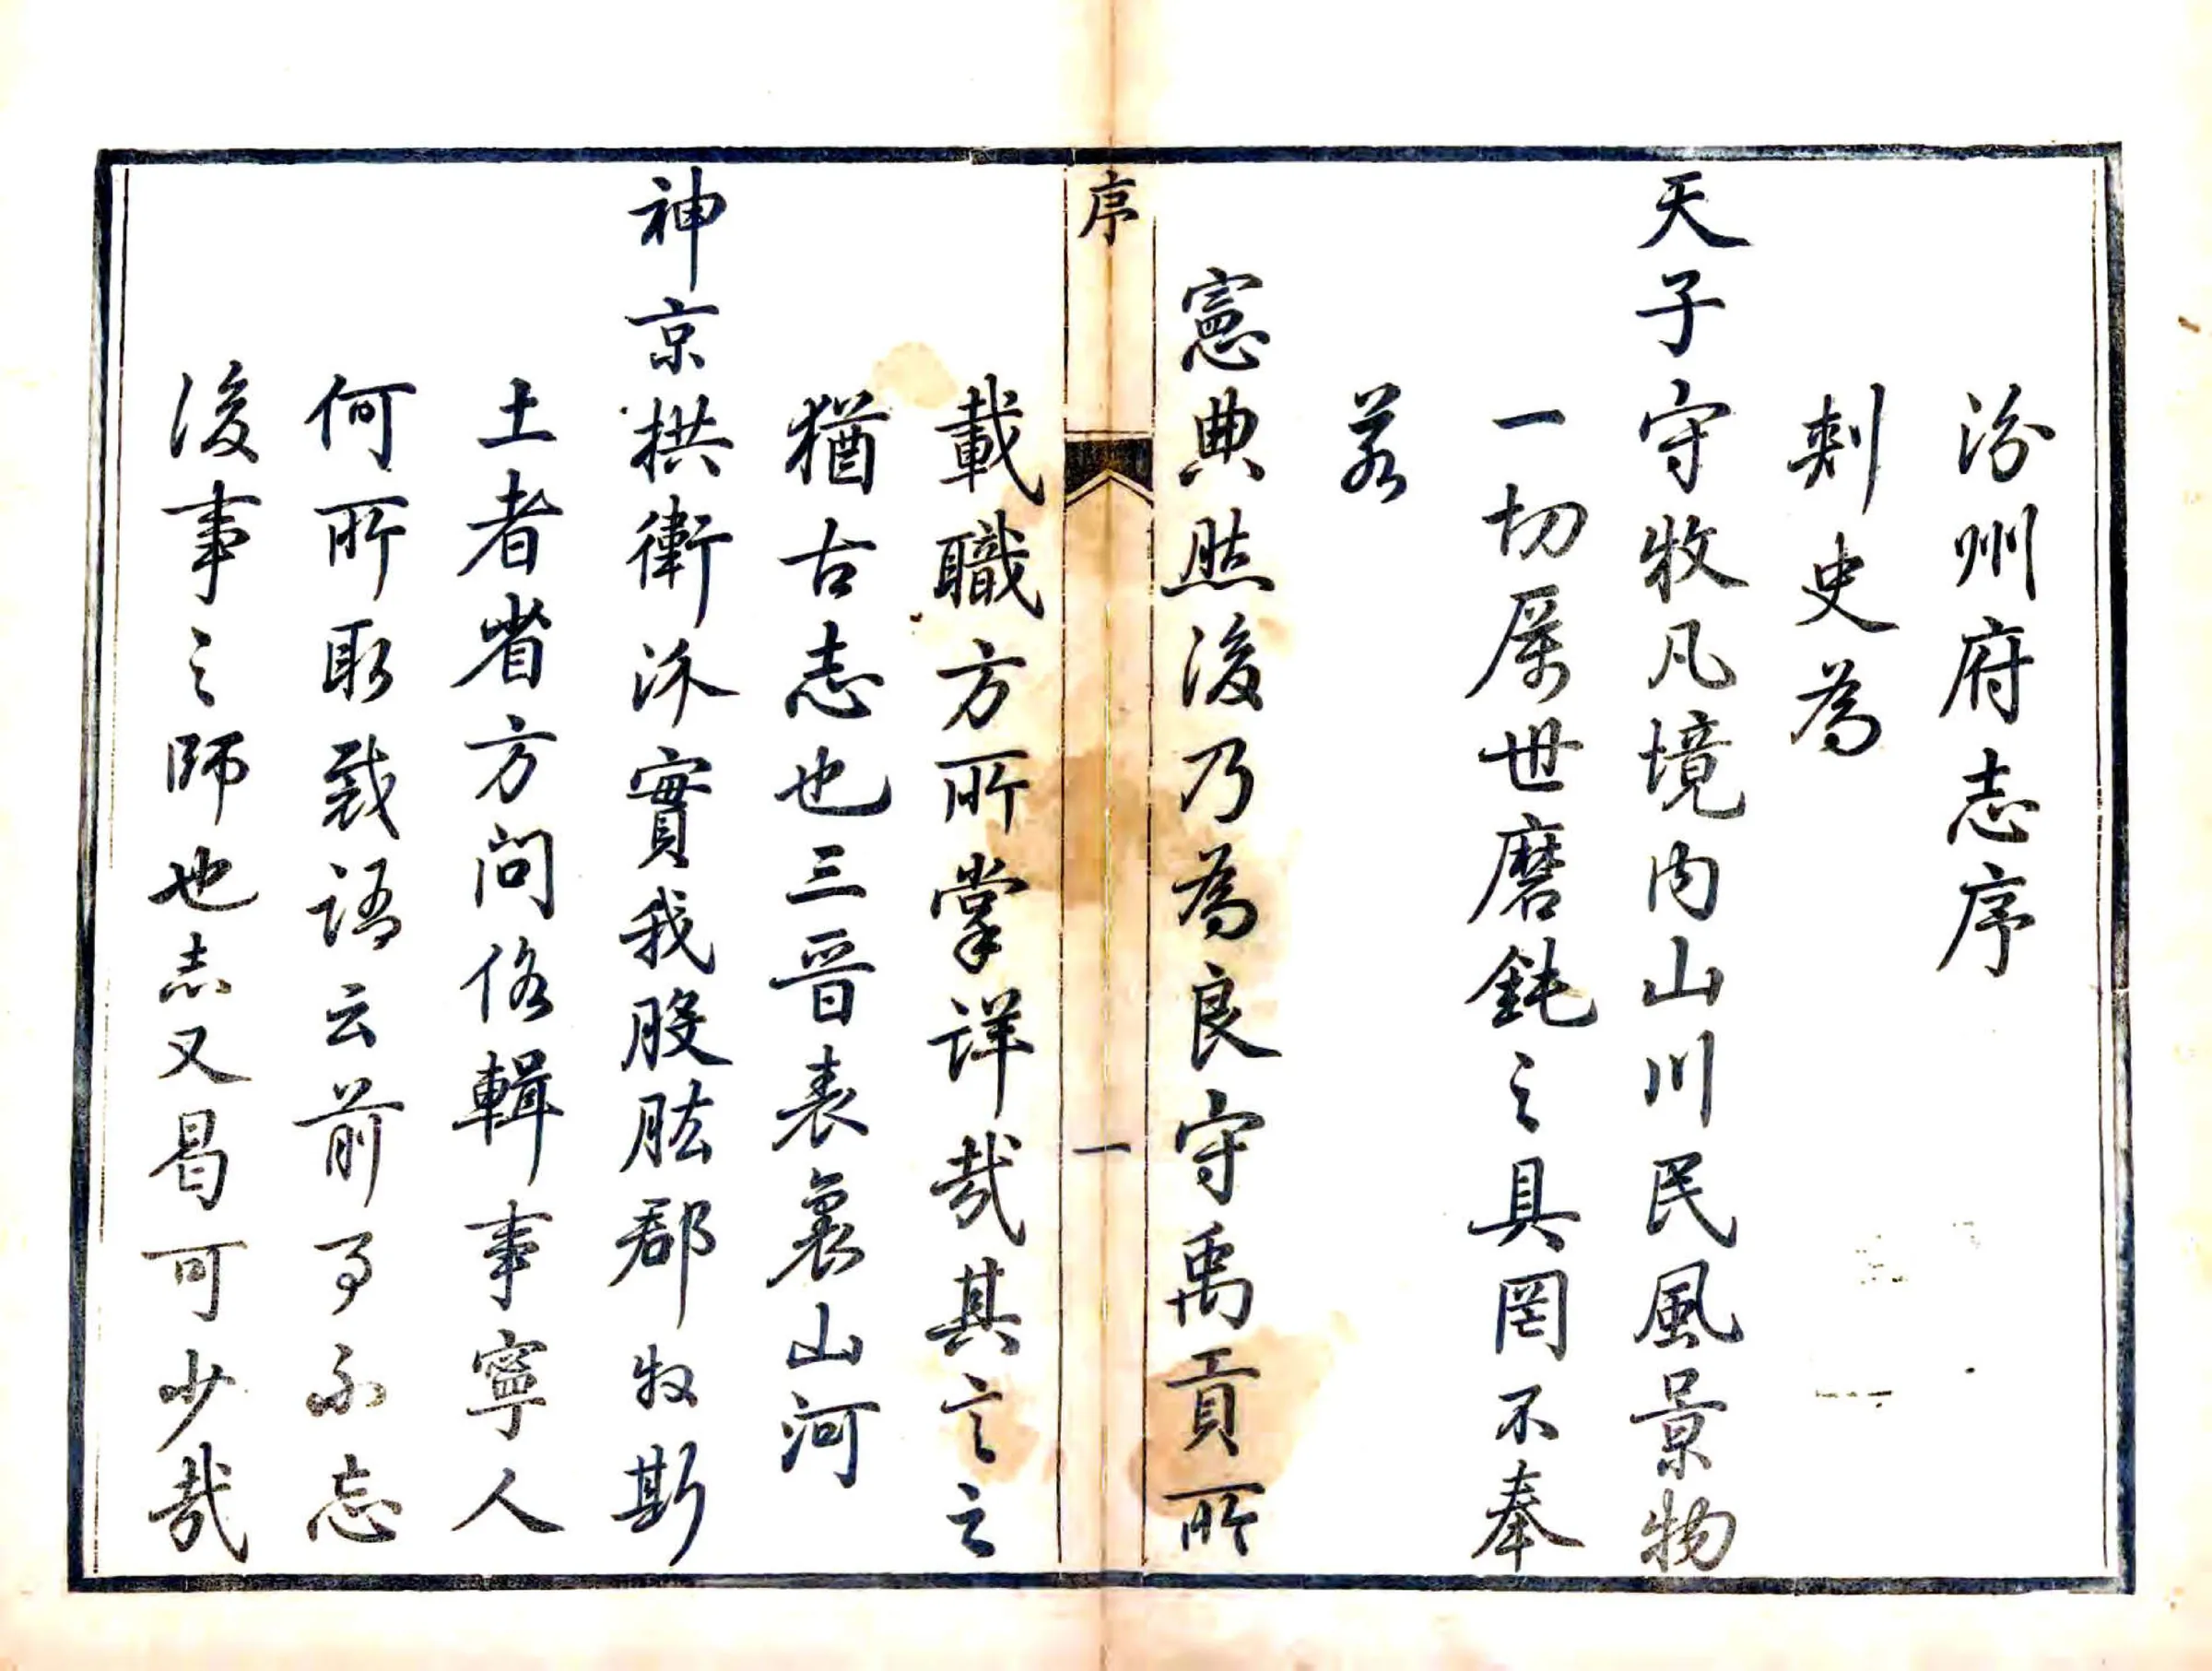 汾州府志序
刺史為
天子守牧凡境内山川民風景物
一切厲世磨鈍之具罔不奉
若
憲典然後乃為良守禹貢所
序
一
載職方所掌詳哉其言之
猶古志也三晉表裏山河
神京拱衛汾實我股肱郡牧斯
土者省方問俗輯事寧人
何所取裁語云前事不忘
後事之師也志又曷可少哉